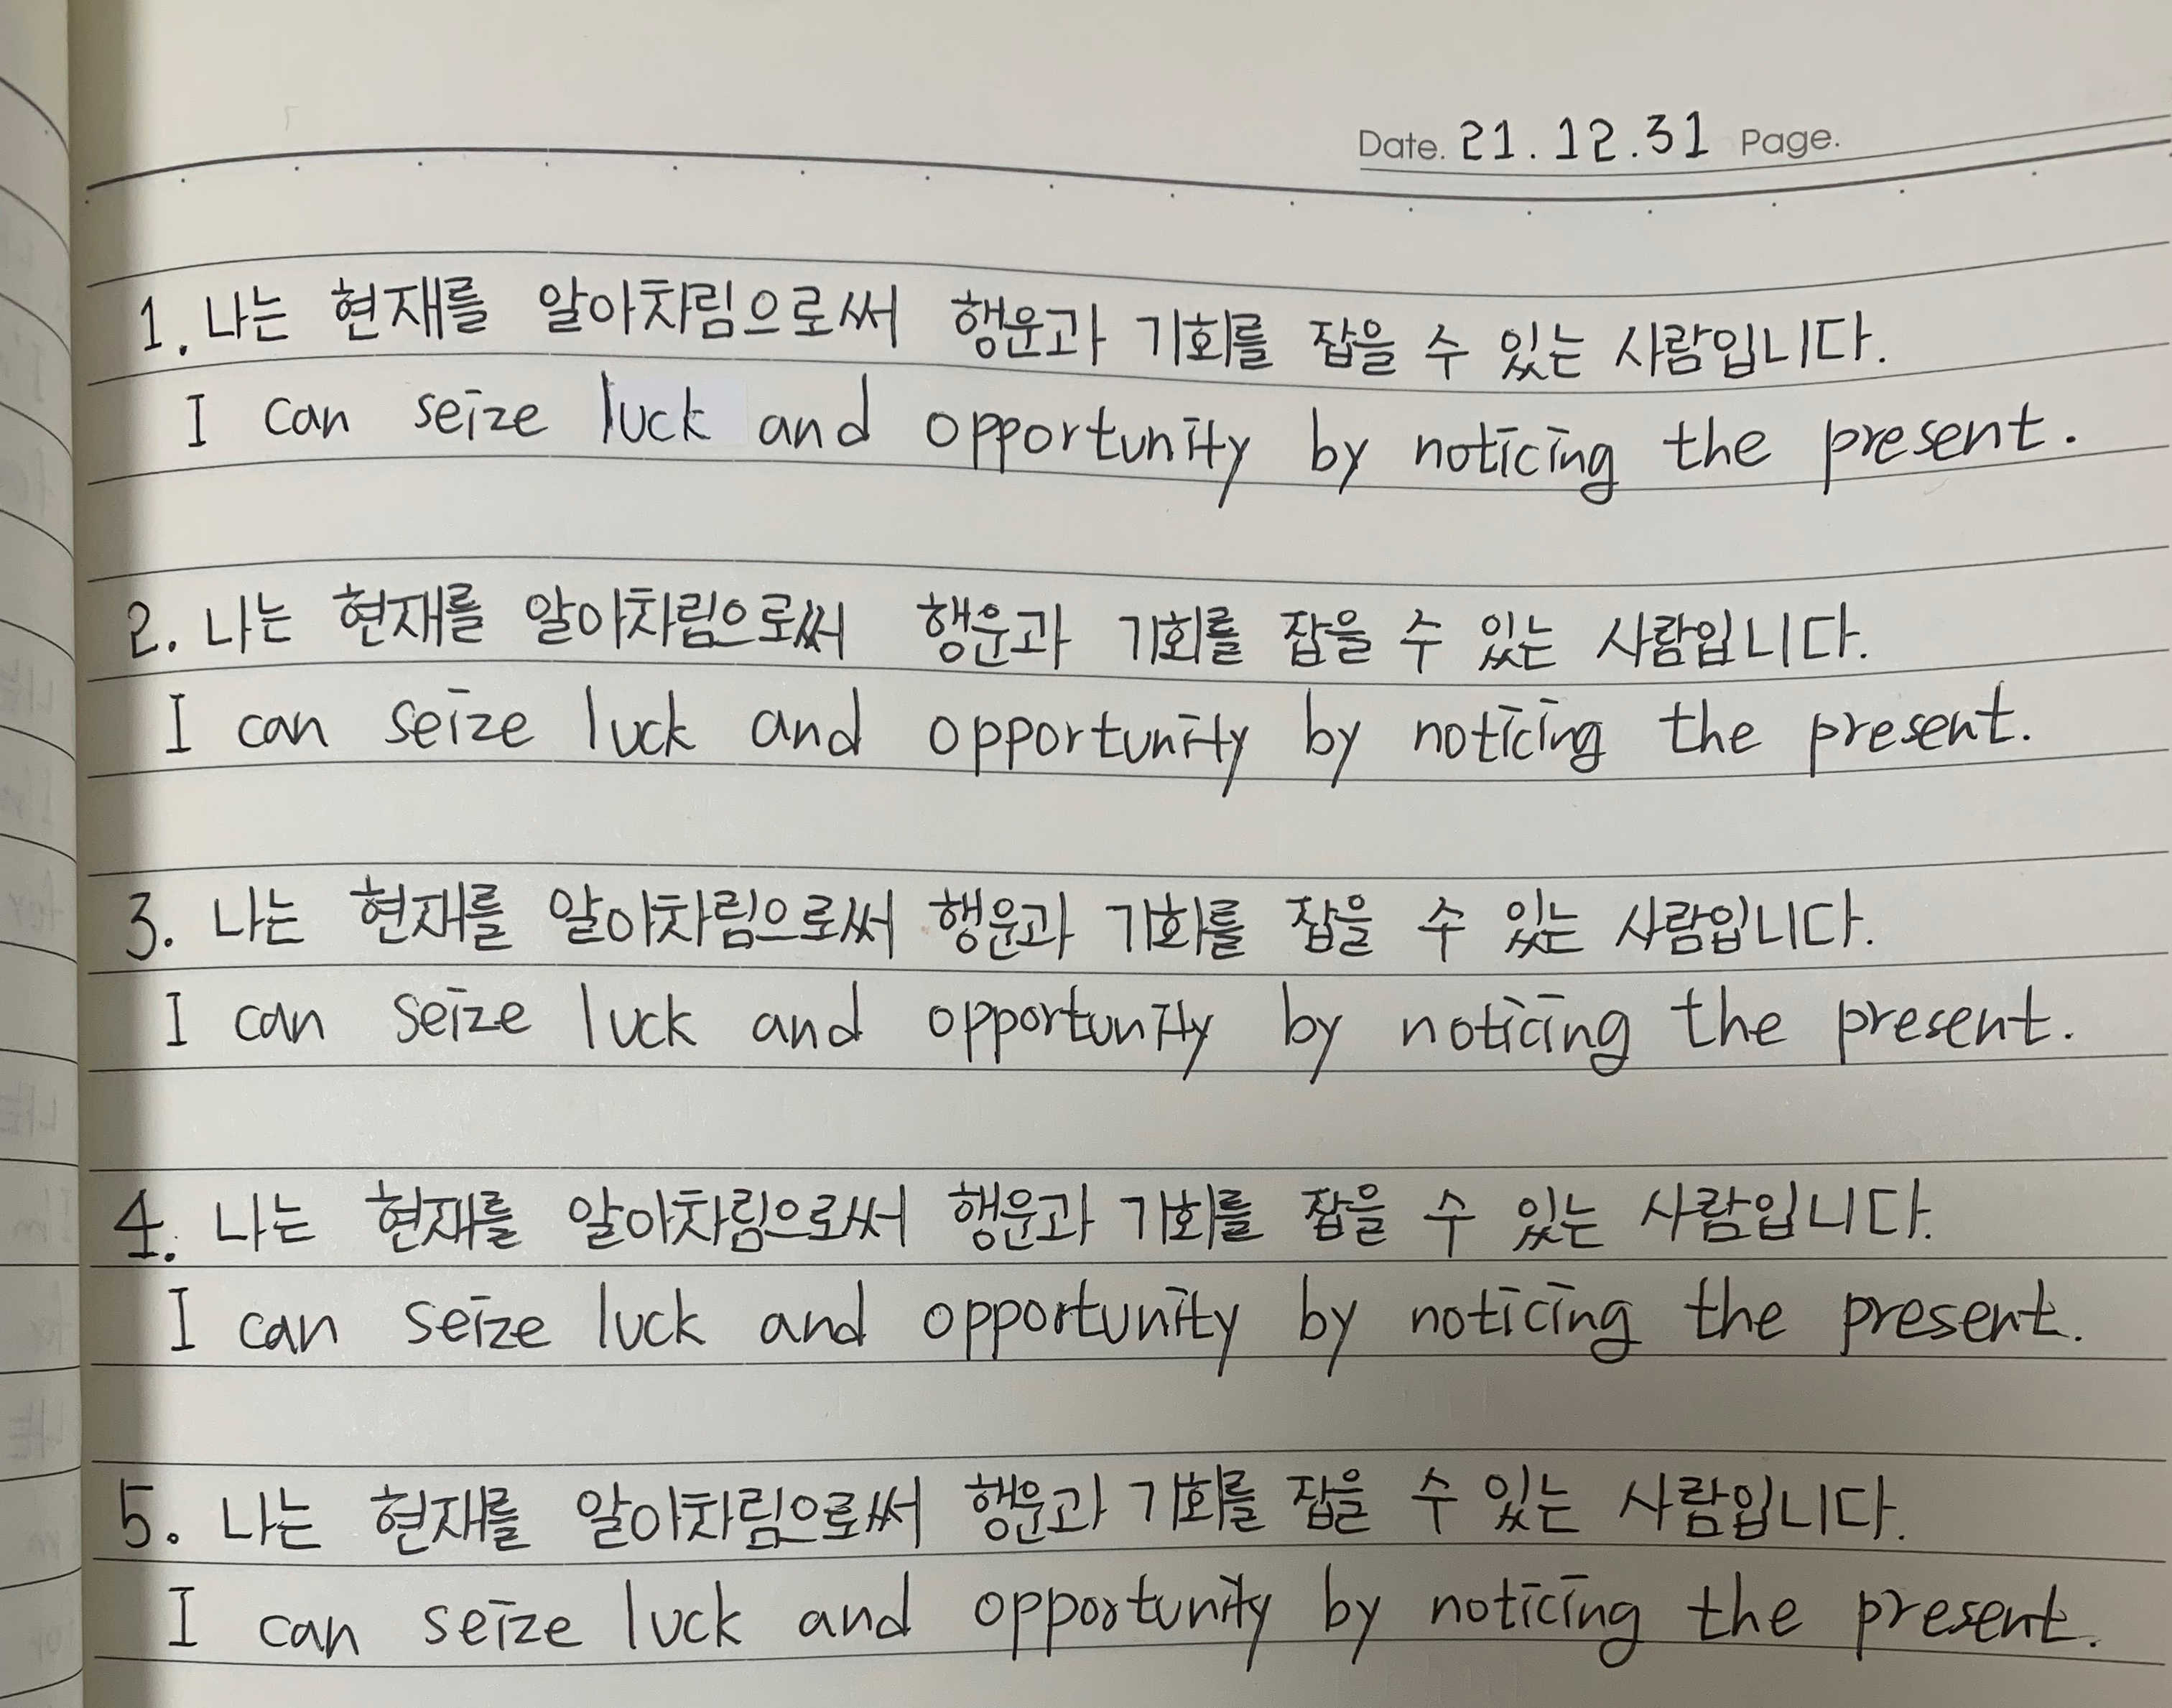 Date. 21. 12. 31 Page.
1. 나는 현재를 알아차림으로써 행운과 기회를 잡을 수 있는 사람입니다.
I can seize luck and opportunity by noticing the present.
2. 나는 현재를 알아차림으로써 행운과 기회를 잡을 수 있는 사람입니다.
I can seize luck and opportunity by noticing the present.
3. 나는 현재를 알아차림으로써 행운과 기회를 잡을 수 있는 사람입니다.
I can seize luck and opportunity by noticing the present.
4. 나는 현재를 알아차림으로써 행운과 기회를 잡을 수 있는 사람입니다.
I can seize luck and opportunity by noticing the present.
5. 나는 현재를 알아차림으로써 행운과 기회를 잡을 수 있는 사람입니다.
I can seize luck and opportunity by noticing the present.